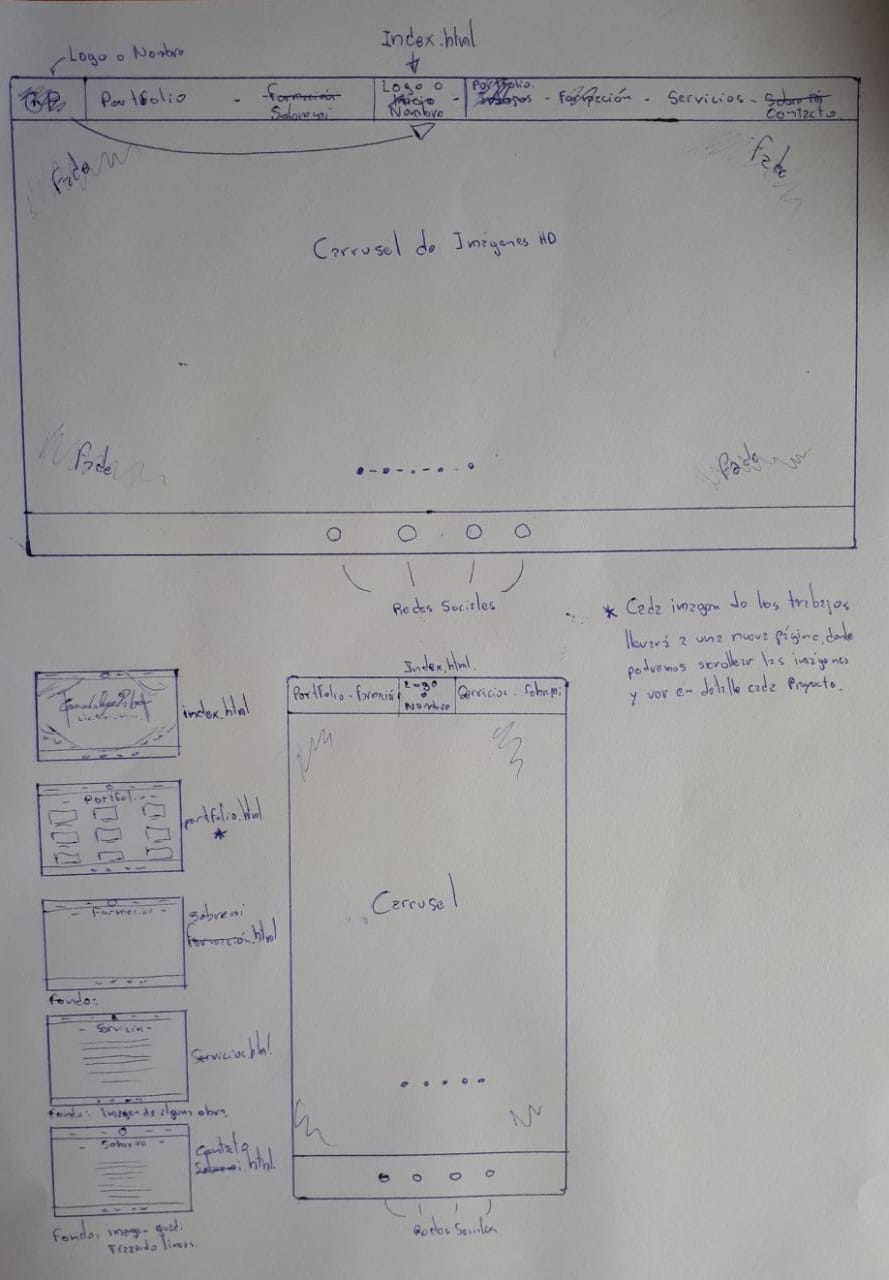 Index.html
Logo o Nombro
Portfolio - Formación
Sobre mi
Logo o
Inicio
Nombro
Portfolio
Trabajos - Formación - Servicios - Sobre mi
Contacto
Fade
Fade
Carrusel de Imágenes HD
Fade
Fade
Redes Sociales
* Cada imagen de los trabajos
llevará a una nueva página, donde
podremos scrollear las imágenes
y ver en detalle cada Proyecto.
index.html
- Portfolio -
portfolio.html
*
- Formación -
Sobre mi
Formación.html
Fondo:
- Servicios -
Servicios.html
Fondo: Imagen de alguna obra.
- Sobre mi -
Contacto
Sobre mi.html
Fondo: imagen
Trazando líneas.
Index.html.
Portfolio - Formación
Logo
o
Nombro
Servicios - Sobre mi
Carrusel
Redes Sociales